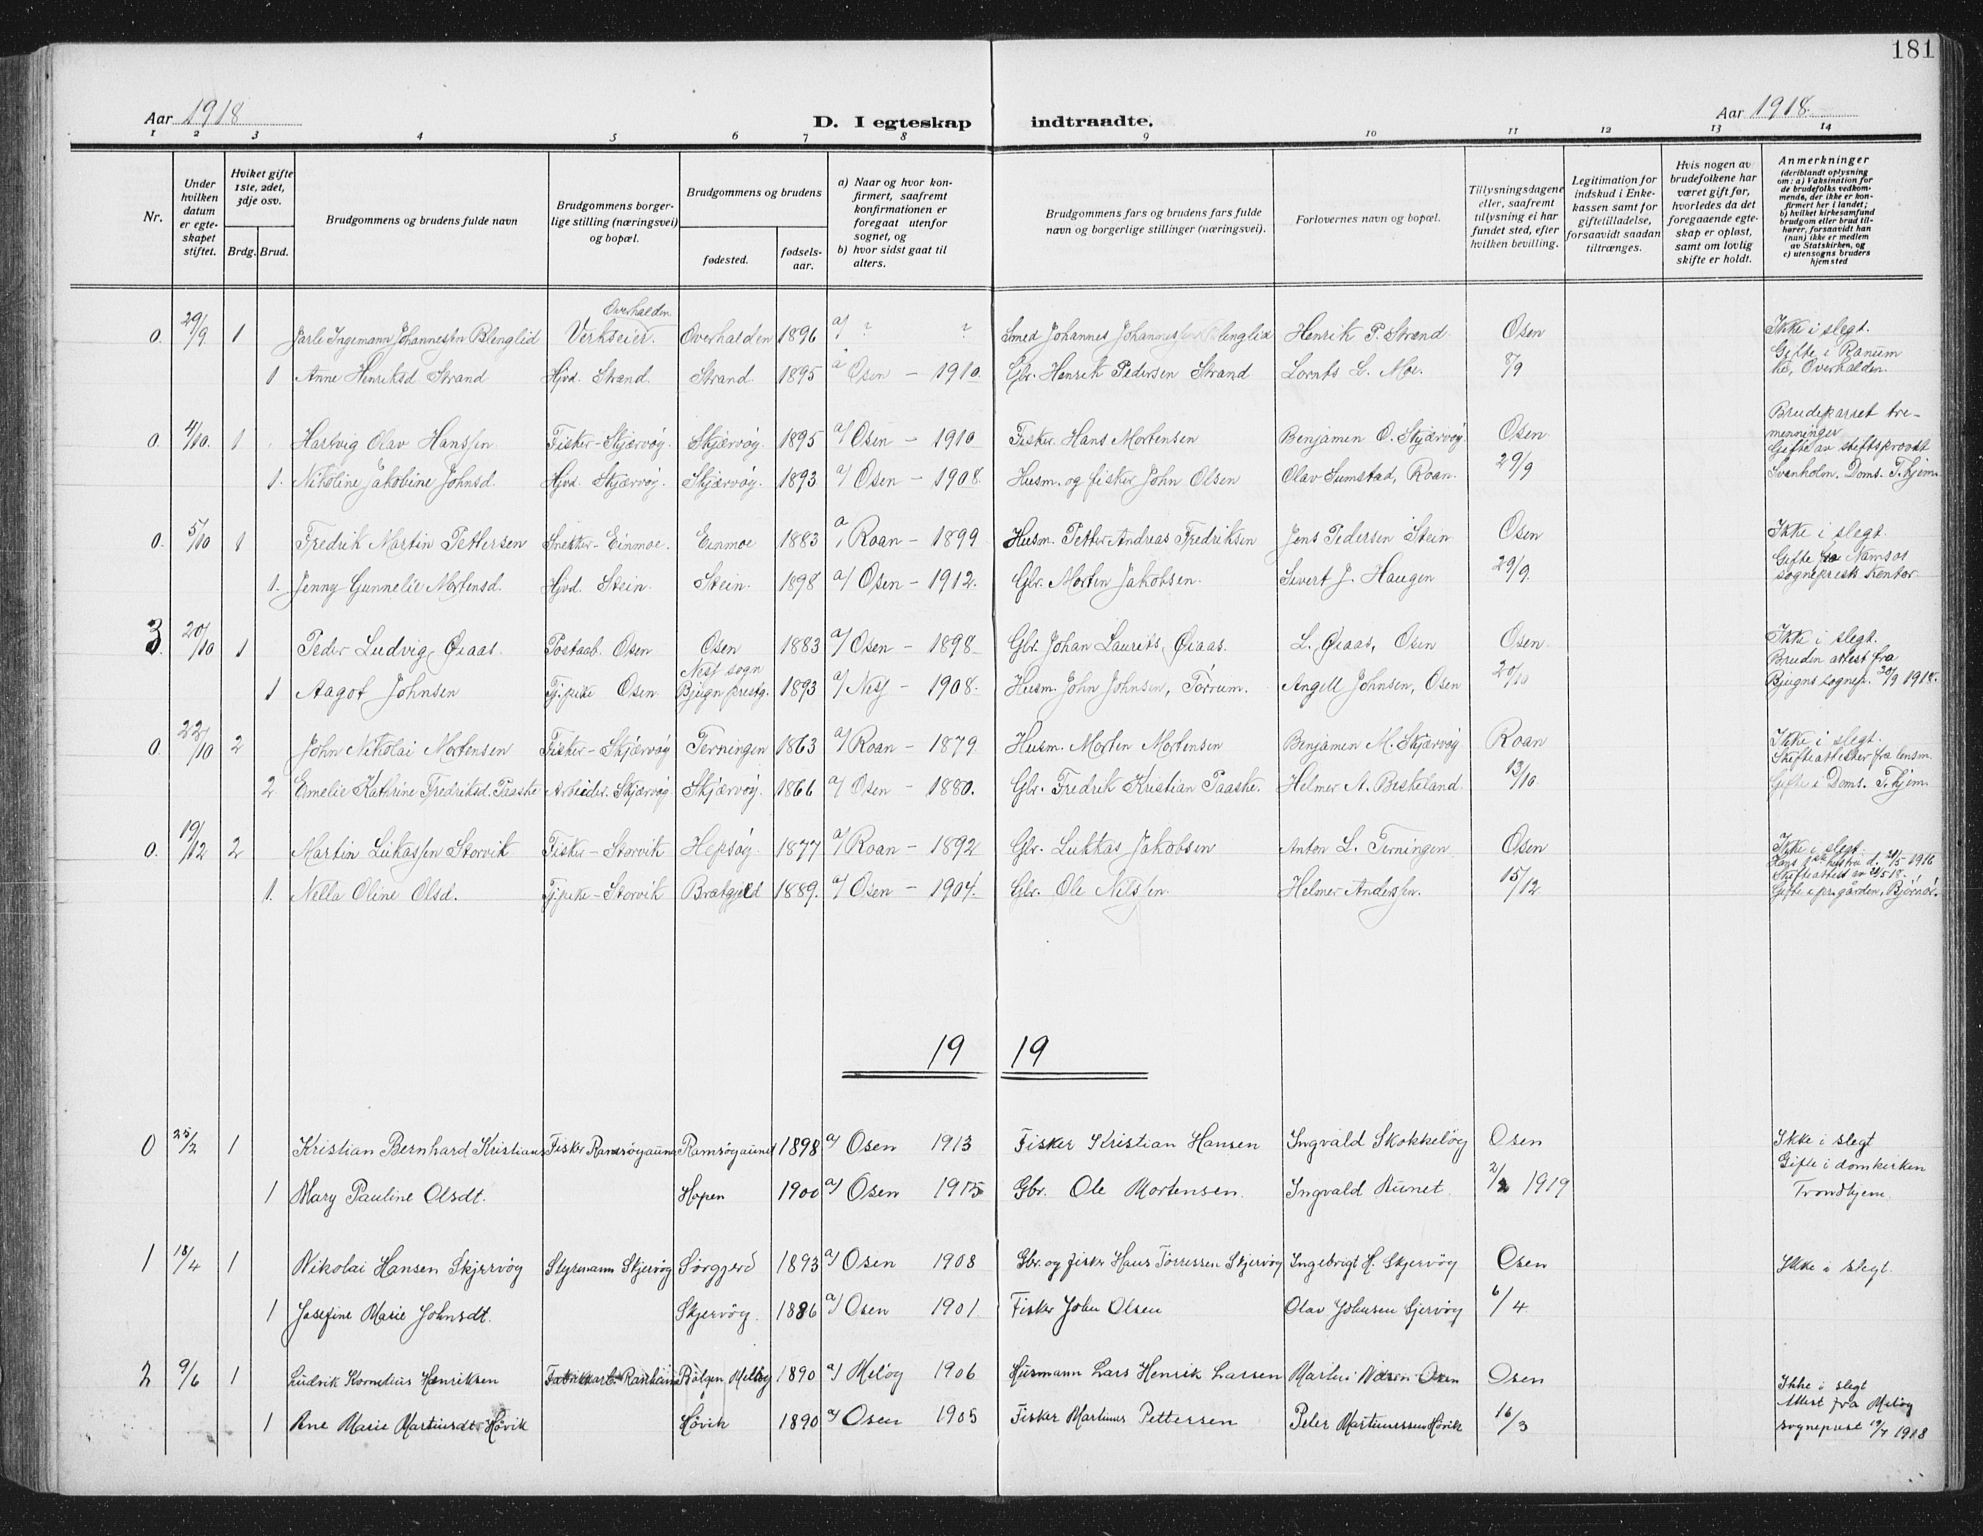 181
Aar 1918
D. I egteskap indtraadte.
Aar 1918.
1 2 3 4 5 6 7 8 9 10 11 12 13 14
Nr.
Under hvilken datum er egteskapet stiftet.
Hviket gifte 1ste, 2det, 3dje osv.
Brdg. Brud.
Brudgommens og brudens fulde navn
Brudgommens borgerlige stilling (næringsvei) og bopæl.
Brudgommens og brudens
fødested.
fødselsaar.
a) Naar og hvor konfirmert, saafremt konfirmationen er foregaat utenfor sognet, og
b) hvor sidst gaat til alters.
Brudgommens fars og brudens fars fulde navn og borgerlige stillinger (næringsvei).
Forlovernes navn og bopæl.
Tillysningsdagene eller, saafremt tillysning ei har fundet sted, efter hvilken bevilling.
Legitimation for indskud i Enkekassen samt for giftetilladelse, forsaavidt saadan tiltrænges.
Hvis nogen av brudefolkene har været gift før, hvorledes da det foregaaende egteskap er opløst, samt om lovlig skifte er holdt.
Anmerkninger (deriblandt oplysning om: a) Vaksination for de brudefolks vedkommende, der ikke er konfirmert her i landet; b) hvilket kirkesamfund brudgom eller brud tilhører, forsaavidt han (hun) ikke er medlem av Statskirken, og c) utensogns bruders hjemsted
0. 29/9 1 Jarle Ingemann Johannessen Blenglid Overhalden Verkseier. Overhalden 1896 a/ ? ? Smed Johannes Johannessen Blenglid Henrik P. Strand Osen Ikke i slegt.
1 Anne Henriksd Strand Hjvd. Strand. Strand. 1895 a Osen – 1910. Gbr. Henrik Pedersen Strand Lornts L. Moe. 8/9 Gifte i Ranum ke, Overhalden.
0. 4/10. 1 Hartvig Olav Hanssen Fisker – Skjærvøy. Skjærvøy. 1895 a/ Osen – 1910 Fisker. Hans Mortensen Benjamin O. Skjærvøy Osen Brudeparret tremenninger
1. Nikoline Jakobine Johnsd. Hjvd. Skjærvøy. Skjærvøy. 1893 a/ Osen – 1908. Husm. og fisker John Olsen Olav Sumstad, Roan. 29/9 Gifte av stiftsprovst Svenholm. Doms. T.hjem.
0. 5/10 1 Fredrik Martin Pettersen Snekker – Einmoe. Einmoe 1883 a/ Roan – 1899 Husm. Petter Andreas Fredriksen Jens Pedersen Stein Osen Ikke i slegt.
1. Jenny Gunnelie Mortensd. Hjvd. Stein. Stein. 1898 a/ Osen – 1912. Gbr. Morten Jakobsen. Sivert J. Haugen 29/9. Gifte Namsos sogneprest kontor.
3. 20/10 1 Peder Ludvig Øraas. Postaab. Osen Osen 1883 a/ Osen – 1898 Gbr. Johan Laurits Øraas. L. Øraas, Osen Osen. Ikke i slegt.
1 Aagot Johnsen Tj.pike Osen. Nes sogn Bjugn prestg. 1893 a/ Nes – 1908. Husm. John Johnsen, Tørrum. Angell Johnsen, Osen 20/10 Bruden attest fra Bjugns sognep. 30/9 1918.
0. 22/10 2 John Nikolai Mortensen Fisker – Skjærvøy Terningen 1863 a/ Roan – 1879 Husm. Morten Mortensen Benjamin M. Skjærvøy Roan Ikke i slegt.
2 Emelie Kathrine Fredriksd. Paaske Arbeider. Skjærvøy Skjærvøy. 1866 a/ Osen – 1880. Gbr. Fredrik Kristian Paaske. Helmer A. Beskeland. 13/10 Skifteattester fra lensm. Gifte i Doms. T.hjem.
0. 19/12 2 Martin Lukassen Storvik Fisker – Storvik Hepsøy. 1877 a/ Roan – 1892 Gbr. Lukkas Jakobsen Anton L. Terningen Osen Ikke i slegt.
1. Nella Oline Olsd. Tj.pike – Storvik Bratgjed 1889. a/ Osen – 1904. Gbr. Ole Nilssen Helmer Anderssen. 15/12 Hans 1ste hustru d. 21/5 1916 Skifteattest av 21/5 18. Gifte i pr.gården, Bjørnør.
19 19
0 25/2 1 Kristian Bernhard Kristians Fisker Ramsøyaune Ramsøyaunet 1898 a/ Osen 1913 Fisker Kristian Hansen Ingvald Skokkeløy Osen Ikke i slegt
1 Mary Pauline Olsdt. Hopen 1900 a/ Osen 1915 Gbr. Ole Mortensen. Ingvald Aunet. 2/2 1919 Gifte i domkirken Trondhjem.
1 18/4 1 Nikolai Hansen Skjervøy Styrmann Skjervøy Sørgjerd 1893 a/ Osen 1908 Gbr. og fisker Hans Tørressen Skjervøy Ingebrigt H. Skjervøy Osen Ikke i slegt.
1 Josefine Marie Johnsdt. Skjervøy. 1886 a/ Osen 1901 Fisker John Olsen Olav Johnsen Sjervøy 6/4
2 9/6 1 Ludvik Kornelius Henriksen Fabrikkarb. Ranheim Bolgen Meløy 1890 a/ Meløy 1906 Husmann Lars Henrik Larsen Martin Osen Osen Ikke i slegt
1 Ane Marie Martinsdt Høvik Høvik 1890 a/ Osen 1905 Fisker Martinus Pettersen Peter Martinussen Høvik 16/3 Attest fra Meløy sogneprest 19/7 1918